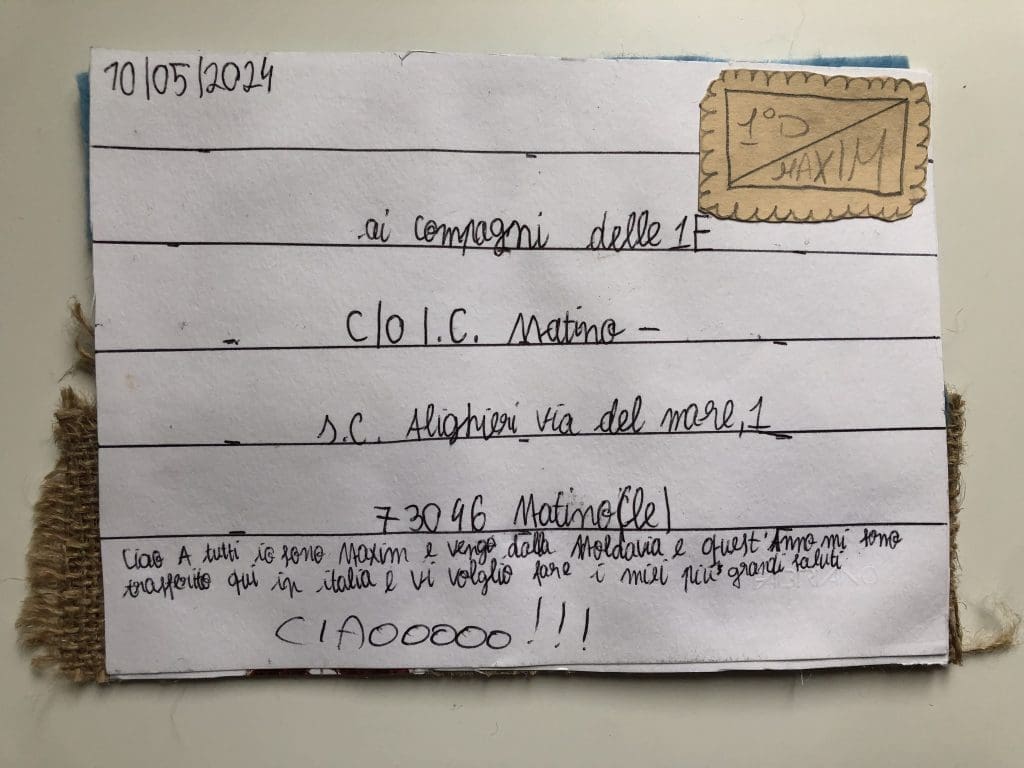 10/05/2024
1°D
MAXIM
ai compagni delle 1E
C/O I.C. Matino -
s.C. Alighieri via del mare, 1
73046 Matino (le)
Ciao A tutti io sono Maxim e vengo dalla Moldavia e quest'Anno mi sono
trasferito qui in italia e vi volglio fare i miei più grandi saluti
CIAOOOOO!!!